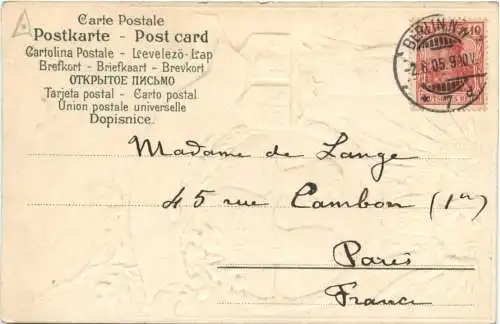 Carte Postale
Postkarte - Post card
Cartolina Postale - Levelező-Lap
Brefkort - Briefkaart - Brevkort
ОТКРЫТОЕ ПИСЬМО
Tarjeta postal - Carto postal
Union postale universelle
Dopisnice.
BERLIN.N.
-2.6.05.9-10V.
10
Madame de Lange
45 rue Cambon (1er)
Paris
France